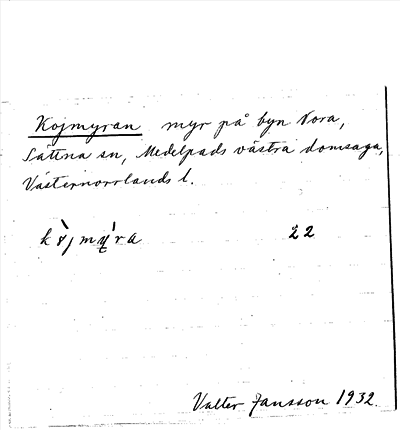 Kojmyran myr på byn Nora,
Sättna sn, Medelpads västra domsaga,
Västernorrlands l.
22
Valter Jansson 1932